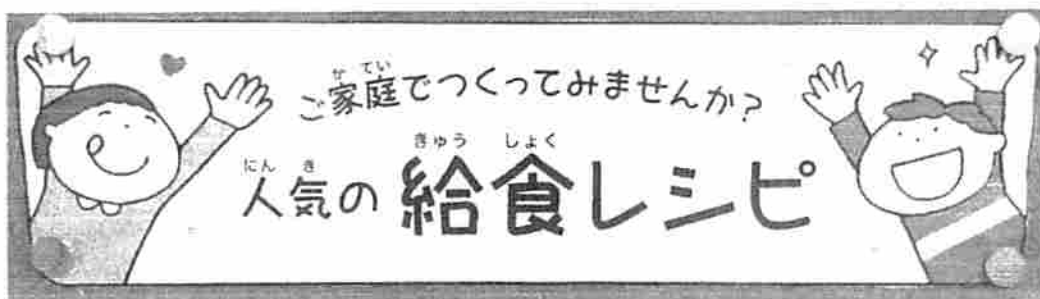 ご家庭でつくってみませんか?
人気の給食レシピ